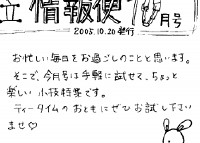 情報便 10月号
2005.10.20 発行
お忙しい毎日をお過しのことと思います。
そこで、今月号は手軽に試せて、ちょっと
楽しい小技特集です。
ティータイムのおともにぜひお試し下さい
ませ♡